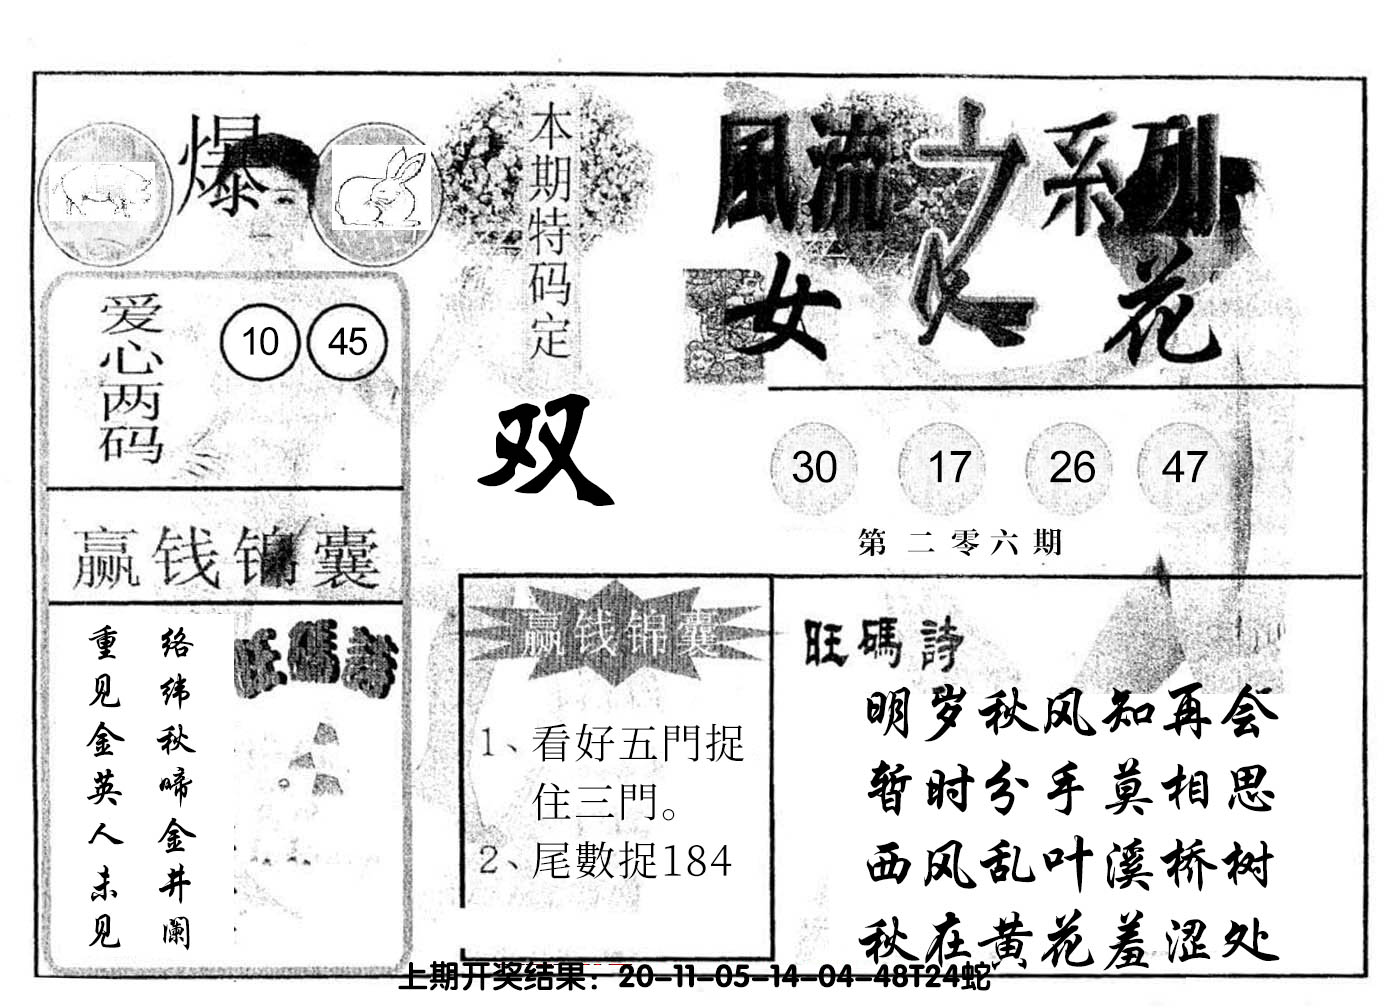 爆
本期特码定
双
風流之系列
女人花
爱心两码
10 45
30 17 26 47
第二零六期
赢钱锦囊
络纬秋啼金井阑
重见金英人未见
旺碼詩
赢钱锦囊
1、看好五門捉
住三門。
2、尾數捉184
旺碼詩
明岁秋风知再会
暂时分手莫相思
西风乱叶溪桥树
秋在黄花羞涩处
上期开奖结果：20-11-05-14-04-48T24蛇